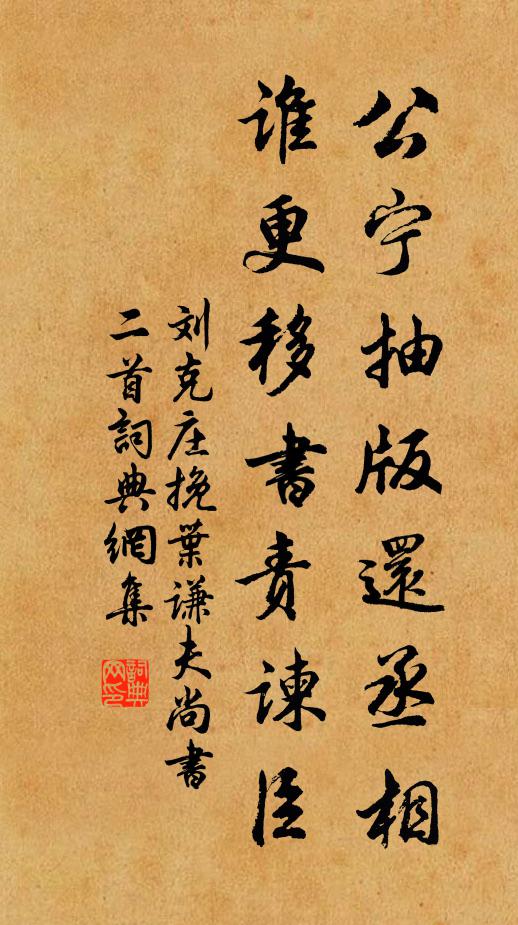 公宁抽版還丞相
谁更移書責諫臣
刘克庄挽葉谦夫尚書
二首詞典網集
詞典
网印